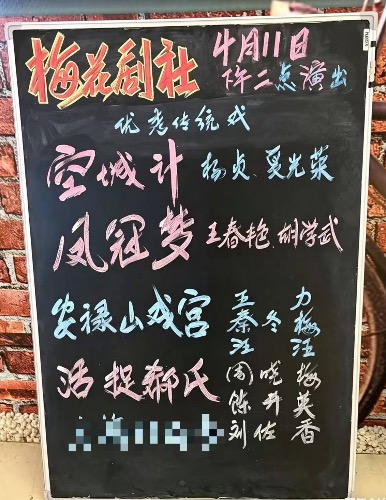 梅花剧社
4月11日
下午二点演出
优秀传统戏
空城计 杨贞、夏光荣
凤冠梦 王春艳、胡学武
安禄山戏宫 王 力
秦冬梅
江 汪
活捉郗氏 (周)晓梅
陈 英
刘佐香